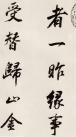 者一昨緣事
受替歸山金